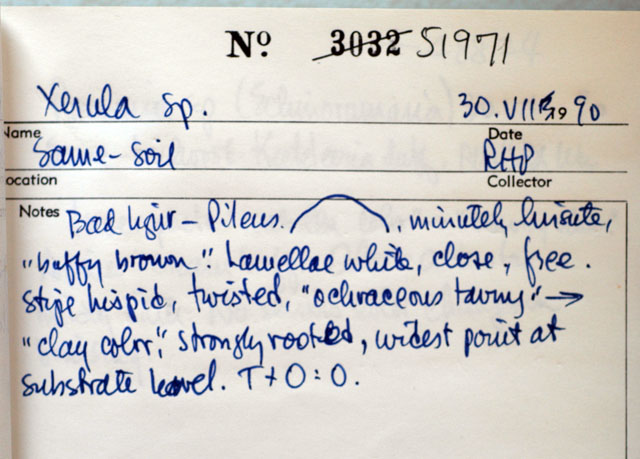 Nº 3032 51971
Xerula sp. 30.VII.1990
Name Date
Same - Soil RHP
ocation Collector
Notes Bad hair - Pileus. minutely hirsute,
"buffy brown". Lamellae white, close, free.
Stipe hispid, twisted, "ochraceous tawny" →
"clay color", strongly rooted, widest point at
substrate level. T + O : O.